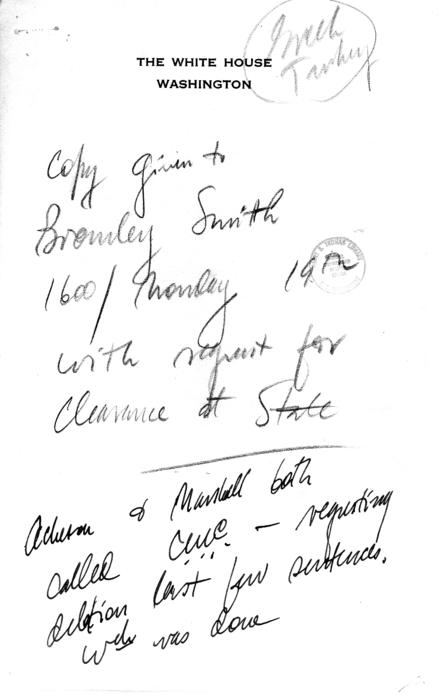 THE WHITE HOUSE
WASHINGTON
Greek
Turkey
Copy given to
Bromley Smith
1600/Monday 19th
with request for
Clearance at State
Acheson & Marshall both
called CMC – requesting
deletion last few sentences.
wch was done